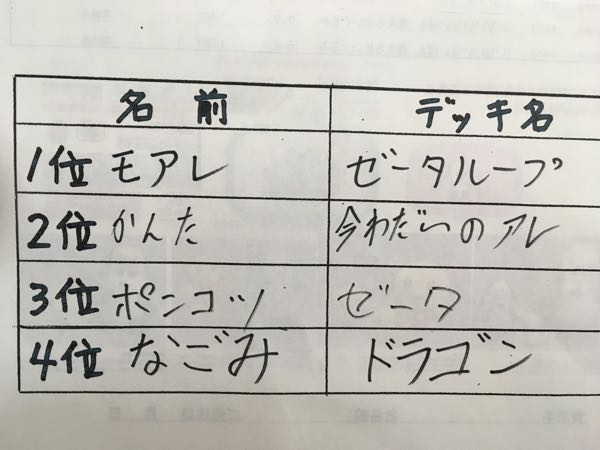 名前 デッキ名
1位 モアレ ゼータループ
2位 かんた 今わだいのアレ
3位 ポンコツ ゼータ
4位 なごみ ドラゴン